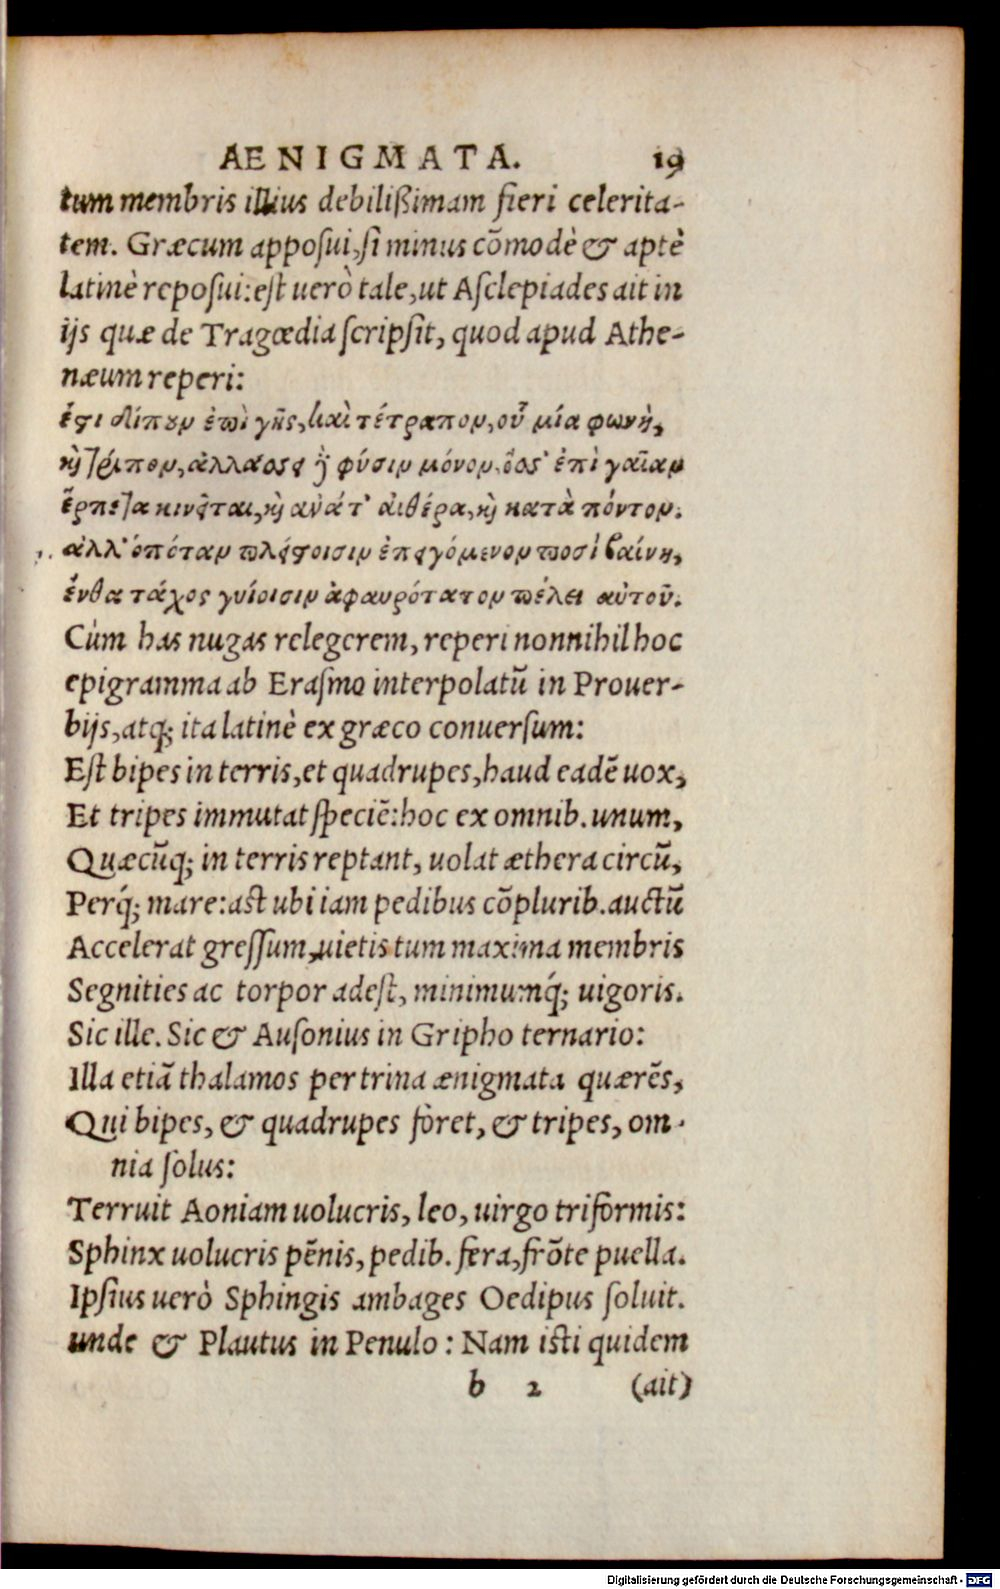 AENIGMATA. 19
tum membris illius debilißimam fieri celerita-
tem. Græcum apposui, si minus cõmodè & aptè
latinè reposui: est uerò tale, ut Asclepiades ait in
ijs quæ de Tragœdia scripsit, quod apud Athe-
næum reperi:
ἔστι δίπουν ἐπὶ γῆς, καὶ τέτραπον, οὗ μία φωνὴ,
καὶ τρίπον, ἀλλάσσει δὲ φύσιν μόνον, ὅσσ' ἐπὶ γαῖαν
ἕρπετα κινεῖται, καὶ ἀνά τ' αἰθέρα, καὶ κατὰ πόντον.
ἀλλ' ὁπόταν πλείστοισιν ἐπειγόμενον ποσὶ βαίνῃ,
ἔνθα τάχος γυίοισιν ἀφαυρότατον πέλει αὐτοῦ.
Cùm has nugas relegerem, reperi nonnihil hoc
epigramma ab Erasmo interpolatũ in Prouer-
bijs, atq; ita latinè ex græco conuersum:
Est bipes in terris, et quadrupes, haud eadẽ uox,
Et tripes immutat speciẽ: hoc ex omnib. unum,
Quæcũq; in terris reptant, uolat æthera circũ,
Perq́; mare: ast ubi iam pedibus cõplurib. auctũ
Accelerat gressum, uietis tum maxima membris
Segnities ac torpor adest, minimumq́; uigoris.
Sic ille. Sic & Ausonius in Gripho ternario:
Illa etiã thalamos per trina ænigmata quærẽs,
Qui bipes, & quadrupes foret, & tripes, om-
nia solus:
Terruit Aoniam uolucris, leo, uirgo triformis:
Sphinx uolucris pẽnis, pedib. fera, frõte puella.
Ipsius uerò Sphingis ambages Oedipus soluit.
unde & Plautus in Penulo: Nam isti quidem
b 2 (ait)
Digitalisierung gefördert durch die Deutsche Forschungsgemeinschaft - DFG